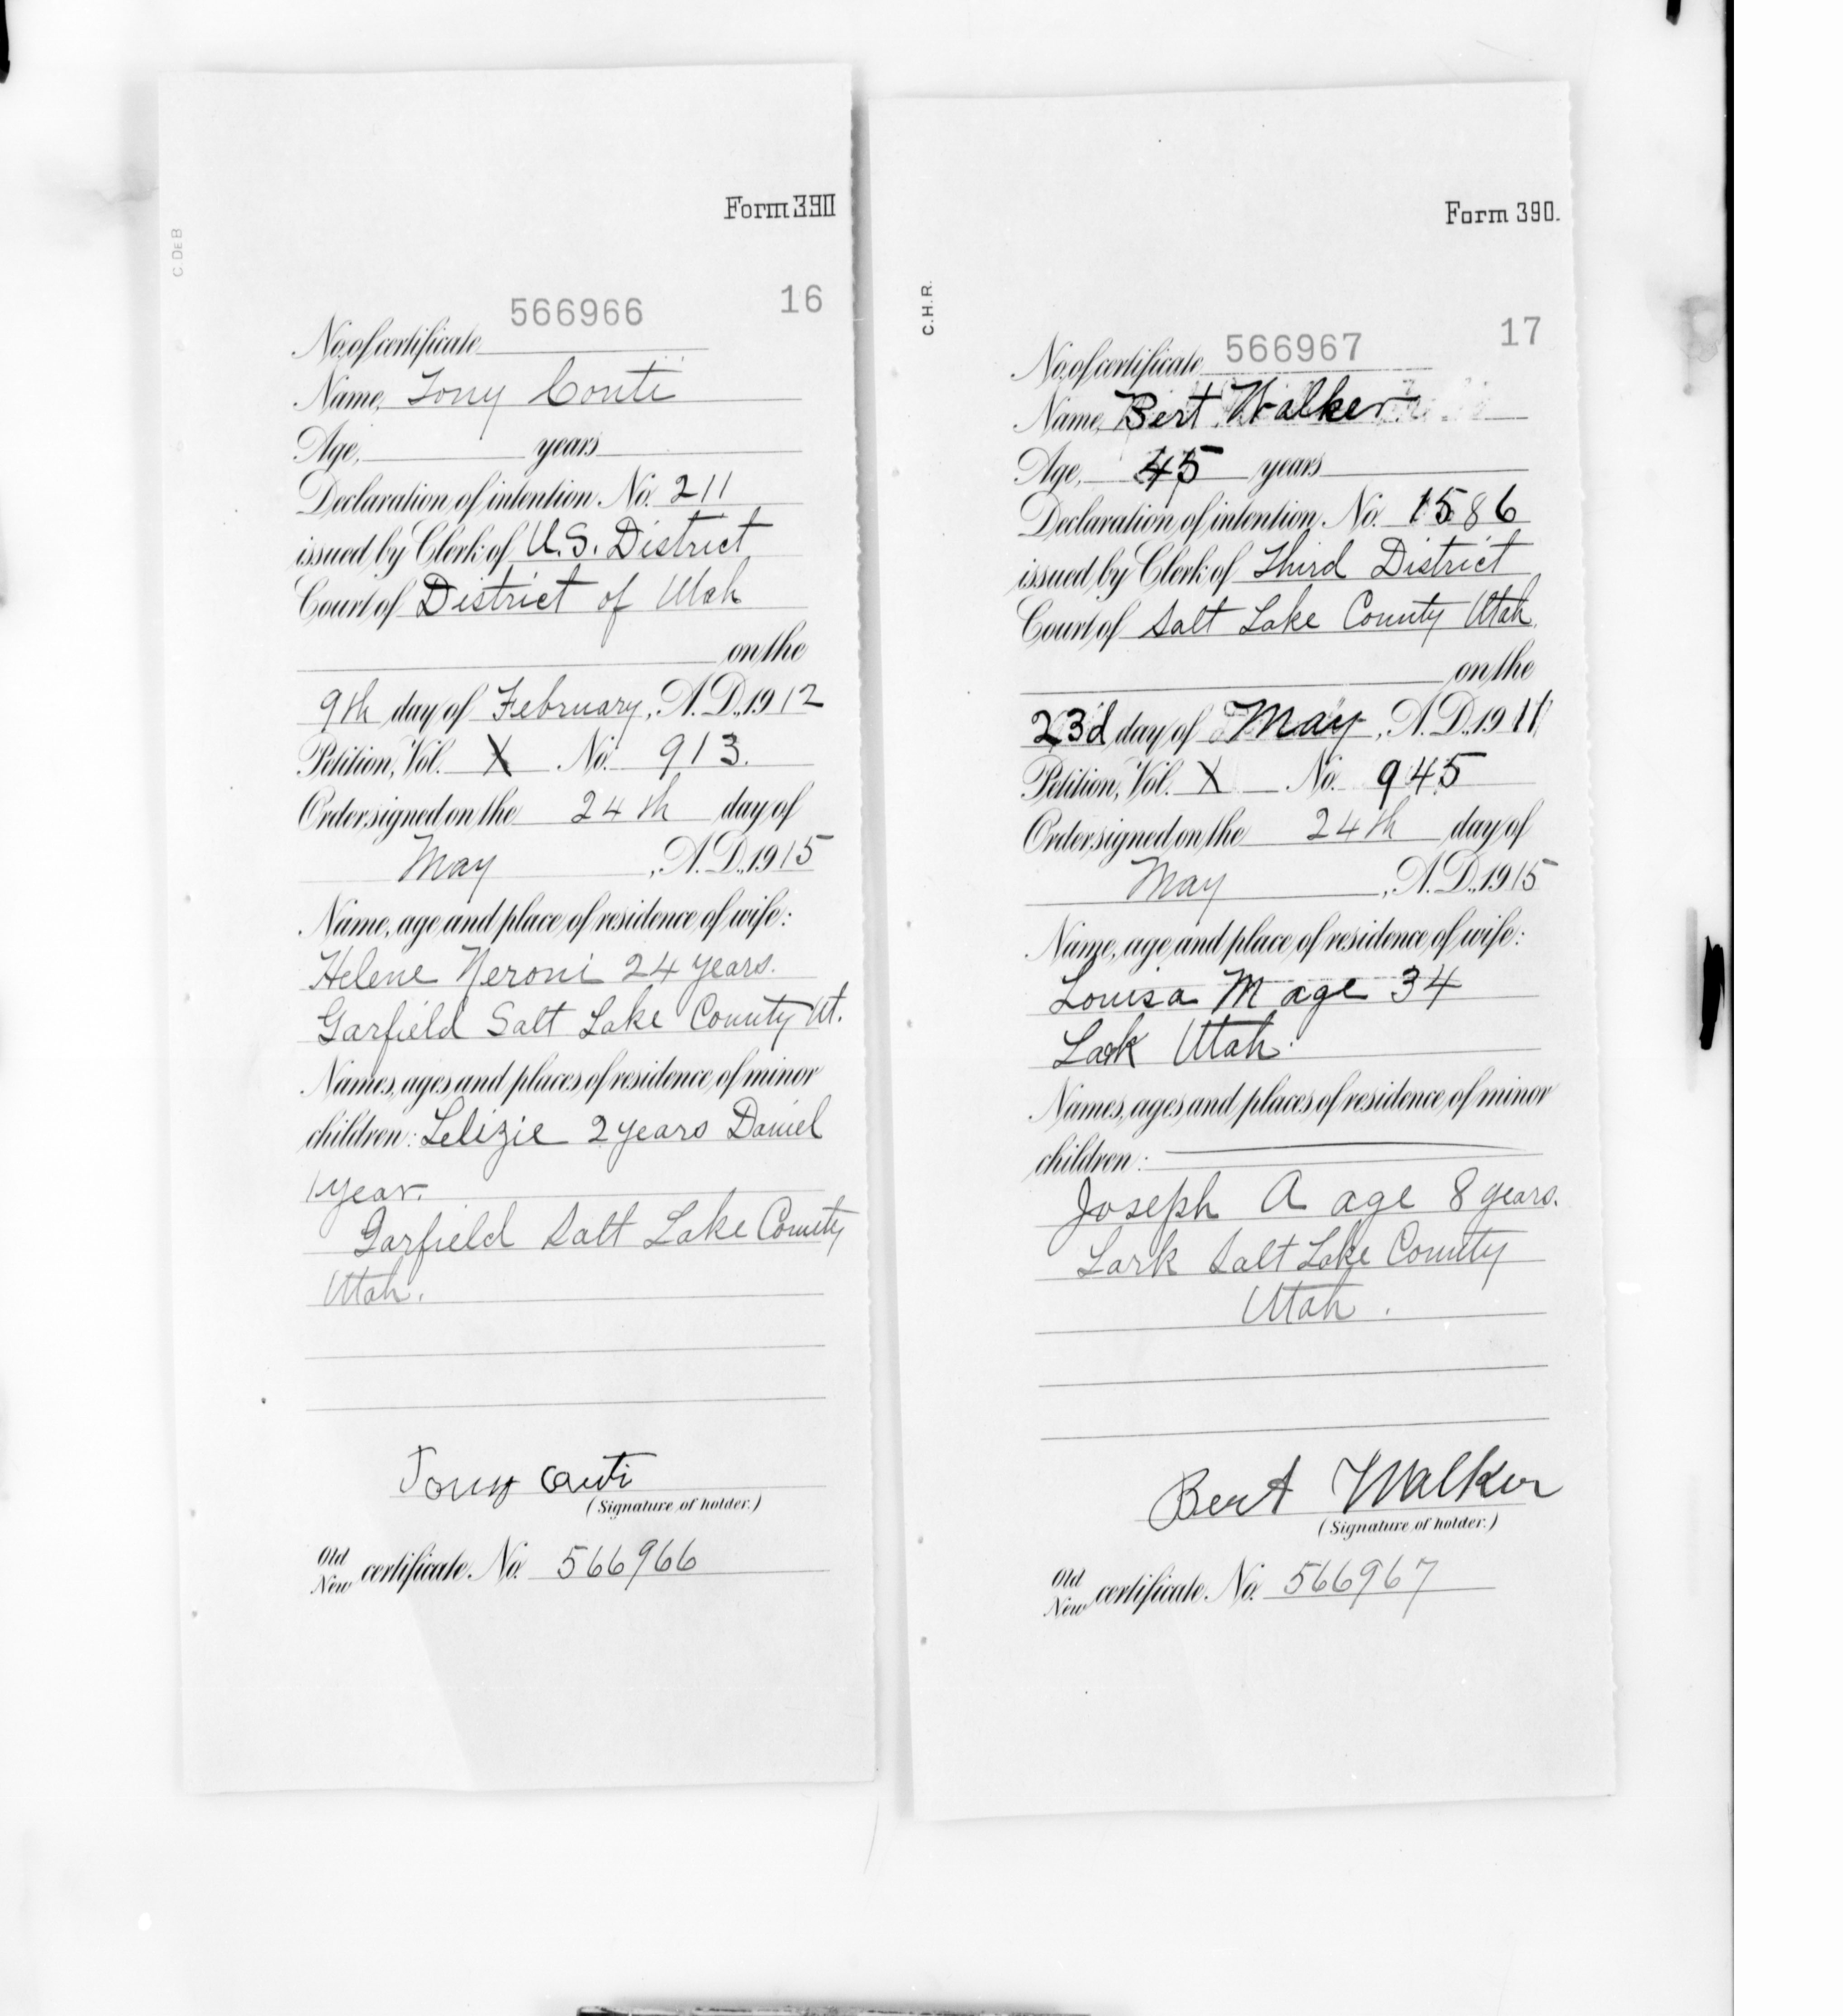 Form 390
C.DEB
566966 16
No. of certificate
Name, Tony Conti
Age, years
Declaration of intention No. 211
issued by Clerk of U.S. District
Court of District of Utah
on the
9th day of February, A.D. 1912
Petition, Vol. X No. 913.
Order signed on the 24th day of
May, A.D. 1915
Name, age and place of residence of wife:
Helene Neroni 24 years.
Garfield Salt Lake County Ut.
Names, ages and places of residence of minor
children: Lelizie 2 years Daniel
1 year.
Garfield Salt Lake County
Utah.
Tony Conti
(Signature of holder.)
Old
New certificate No. 566966
Form 390.
C.H.R.
17
No. of certificate 566967
Name, Bert Walker
Age, 45 years
Declaration of intention No. 1586
issued by Clerk of Third District
Court of Salt Lake County Utah.
on the
23d day of May, A.D. 1911
Petition, Vol. X No. 945
Order signed on the 24th day of
May, A.D. 1915
Name, age and place of residence of wife:
Louisa M age 34
Lark Utah.
Names, ages and places of residence of minor
children:
Joseph A age 8 years.
Lark Salt Lake County
Utah.
Bert Walker
(Signature of holder.)
Old
New certificate No. 566967